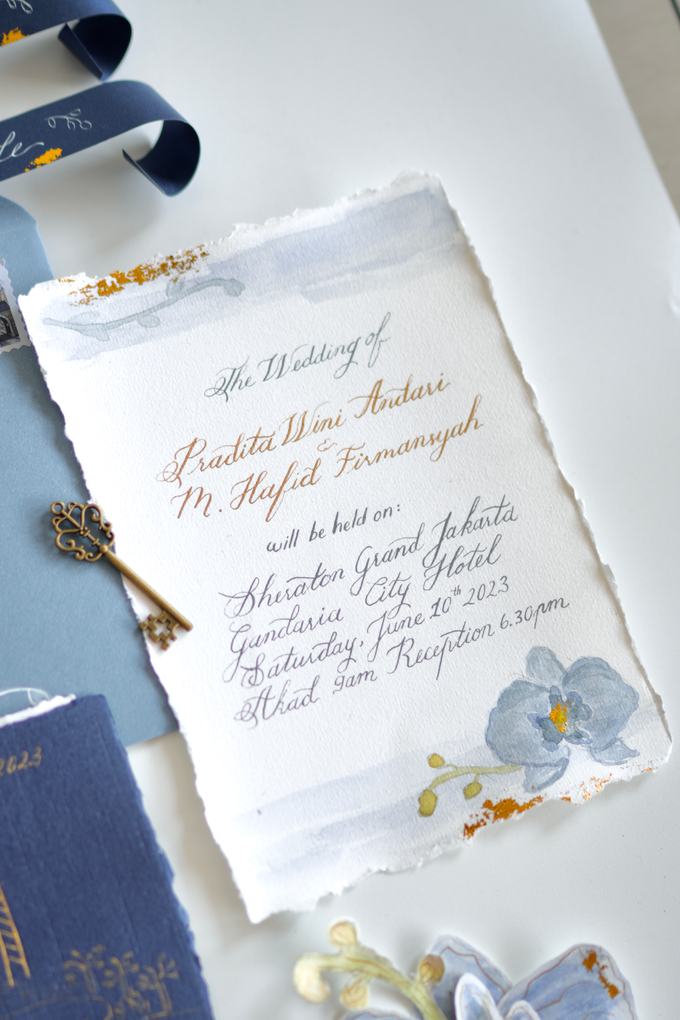 The Wedding of
Pradita Wini Andari
&
M. Hafid Firmansyah
will be held on:
Sheraton Grand Jakarta
Gandaria City Hotel
Saturday, June 10th 2023
Akad 9am Reception 6.30pm
2023